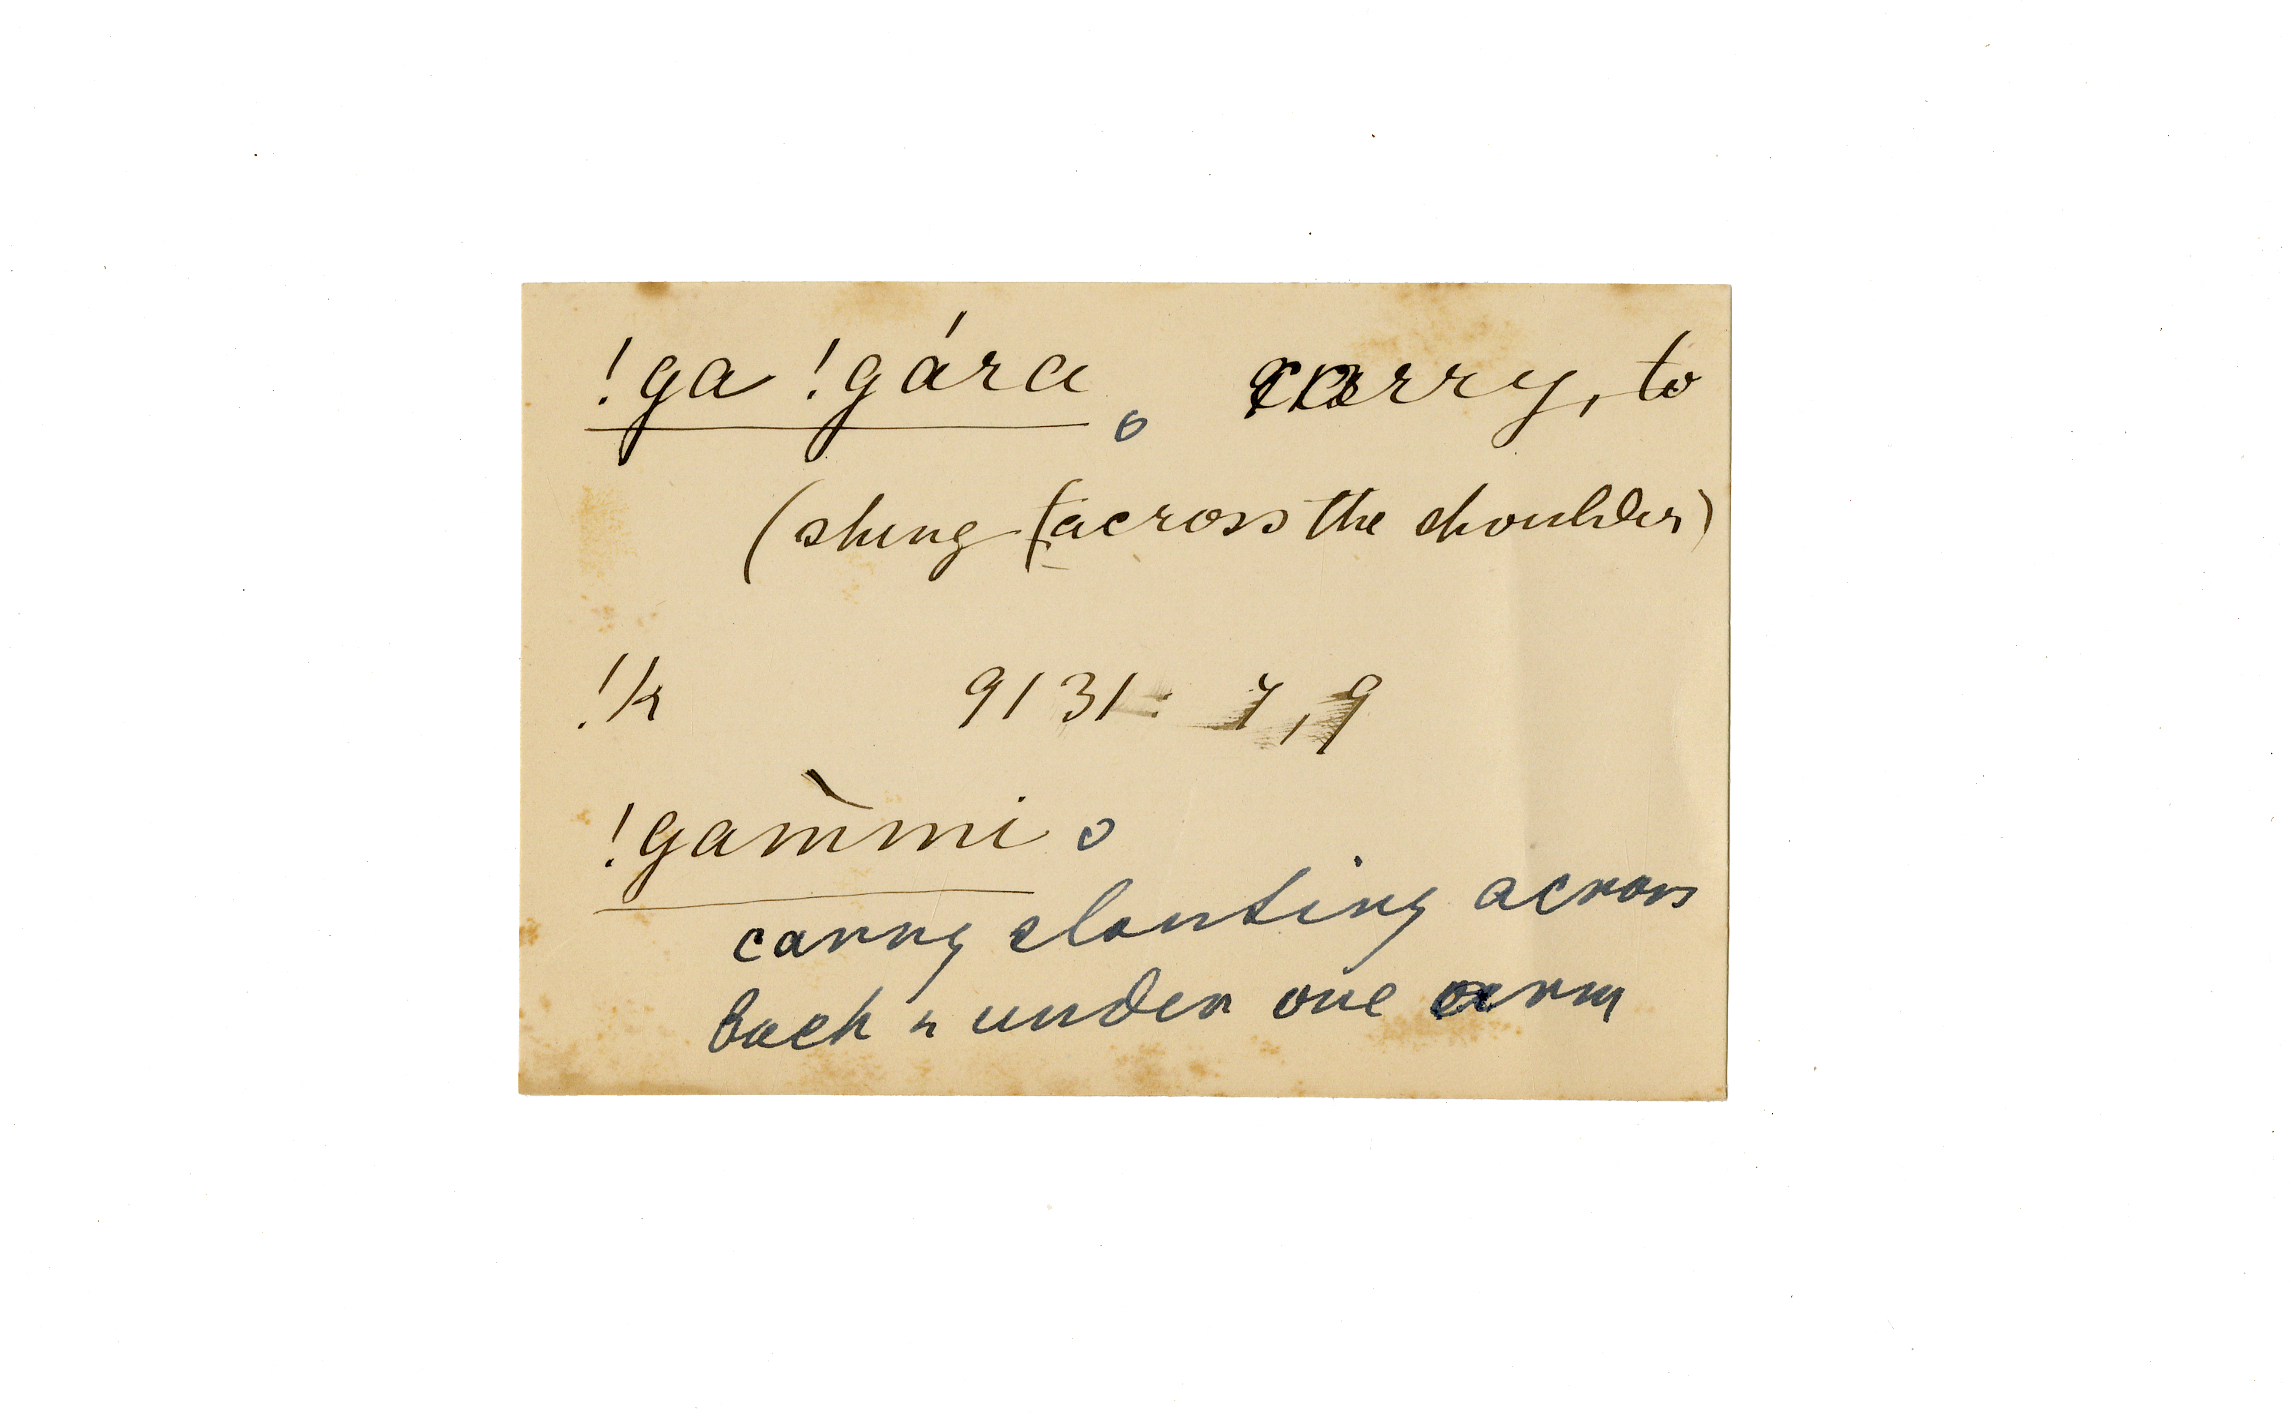 !ga !gára o carry, to
(slung (across the shoulder)
!k 9131: 7, 9
!gam̀mi o
carry slanting across
back & under one arm